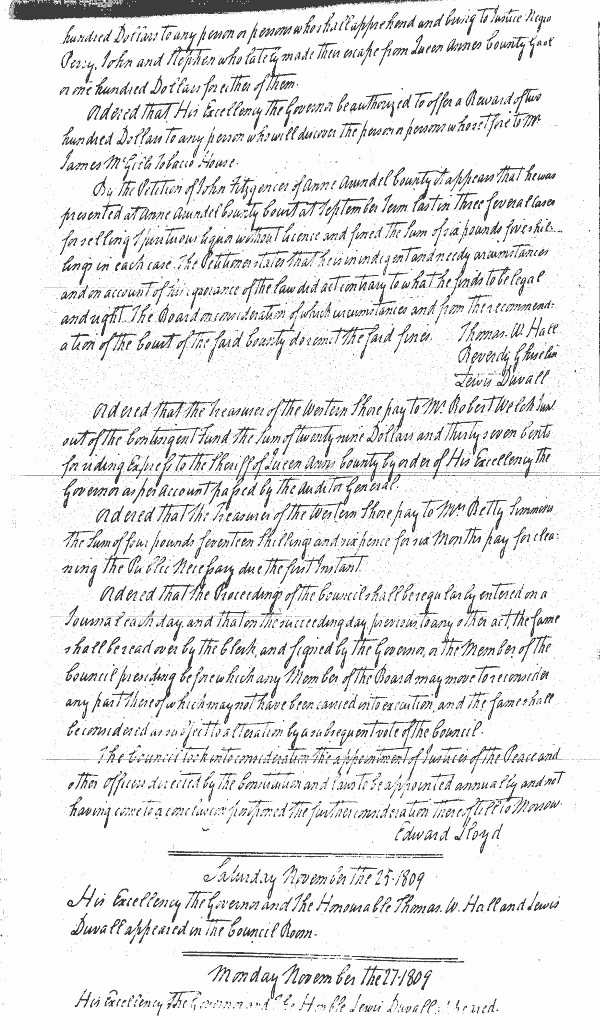 hundred Dollars to any person or persons who shall apprehend and bring to Justice Negro
Perry, John and Stephen who lately made their escape from Queen Annes County Gaol
or one hundred Dollars for either of them.
Ordered that His Excellency the Governor be authorized to offer a Reward of two
hundred Dollars to any person who will discover the person or persons who set fire to Mr.
James Tobacco House.
By the Petition of John of Anne Arundel County it appears that he was
presented at Anne Arundel County Court at September Term last in three several cases
for selling Spirituous liquor without licence and fined the sum of six pounds five shil-
lings in each case. The Petitioner states that he is in indigent and needy circumstances
and on account of his ignorance of the law did act contrary to what he finds to be legal
and right. The Board on consideration of which circumstances and from the recommend-
ation of the Court of the said County do remit the said fines. Thomas. W. Hall
Reverdy Ghiselin
Lewis Duvall
Ordered that the Treasurer of the Western Shore pay to Mr. Robert Welch
out of the Contingent Fund the sum of twenty nine Dollars and thirty seven Cents
for riding Express to the Sheriff of Queen Anns County by order of His Excellency the
Governor as per account passed by the Auditor General.
Ordered that the Treasurer of the Western Shore pay to Mrs. Betty Simmons
the sum of four pounds seventeen Shillings and six pence for six Months pay for clea-
ning the Public Necessary due the first Instant.
Ordered that the Proceedings of the Council shall be regularly entered on a
Journal each day, and that on the succeeding day previous to any other act, the same
shall be read over by the Clerk, and signed by the Governor, or the Member of the
Council presiding before which any Member of the Board may move to reconsider
any part thereof which may not have been carried into execution, and the same shall
be considered as subject to alteration by a subsequent vote of the Council.
The Council took into consideration the appointment of Justices of the Peace and
other Officers directed by the Constitution and Laws to be appointed annually and not
having come to a conclusion postponed the further consideration thereof till to Morrow.
Edward Lloyd
Saturday November the 25. 1809
His Excellency the Governor and The Honourable Thomas. W. Hall and Lewis
Duvall appeared in the Council Room.
Monday November the 27. 1809
His Excellency The Governor and The Honble Lewis Duvall appeared.